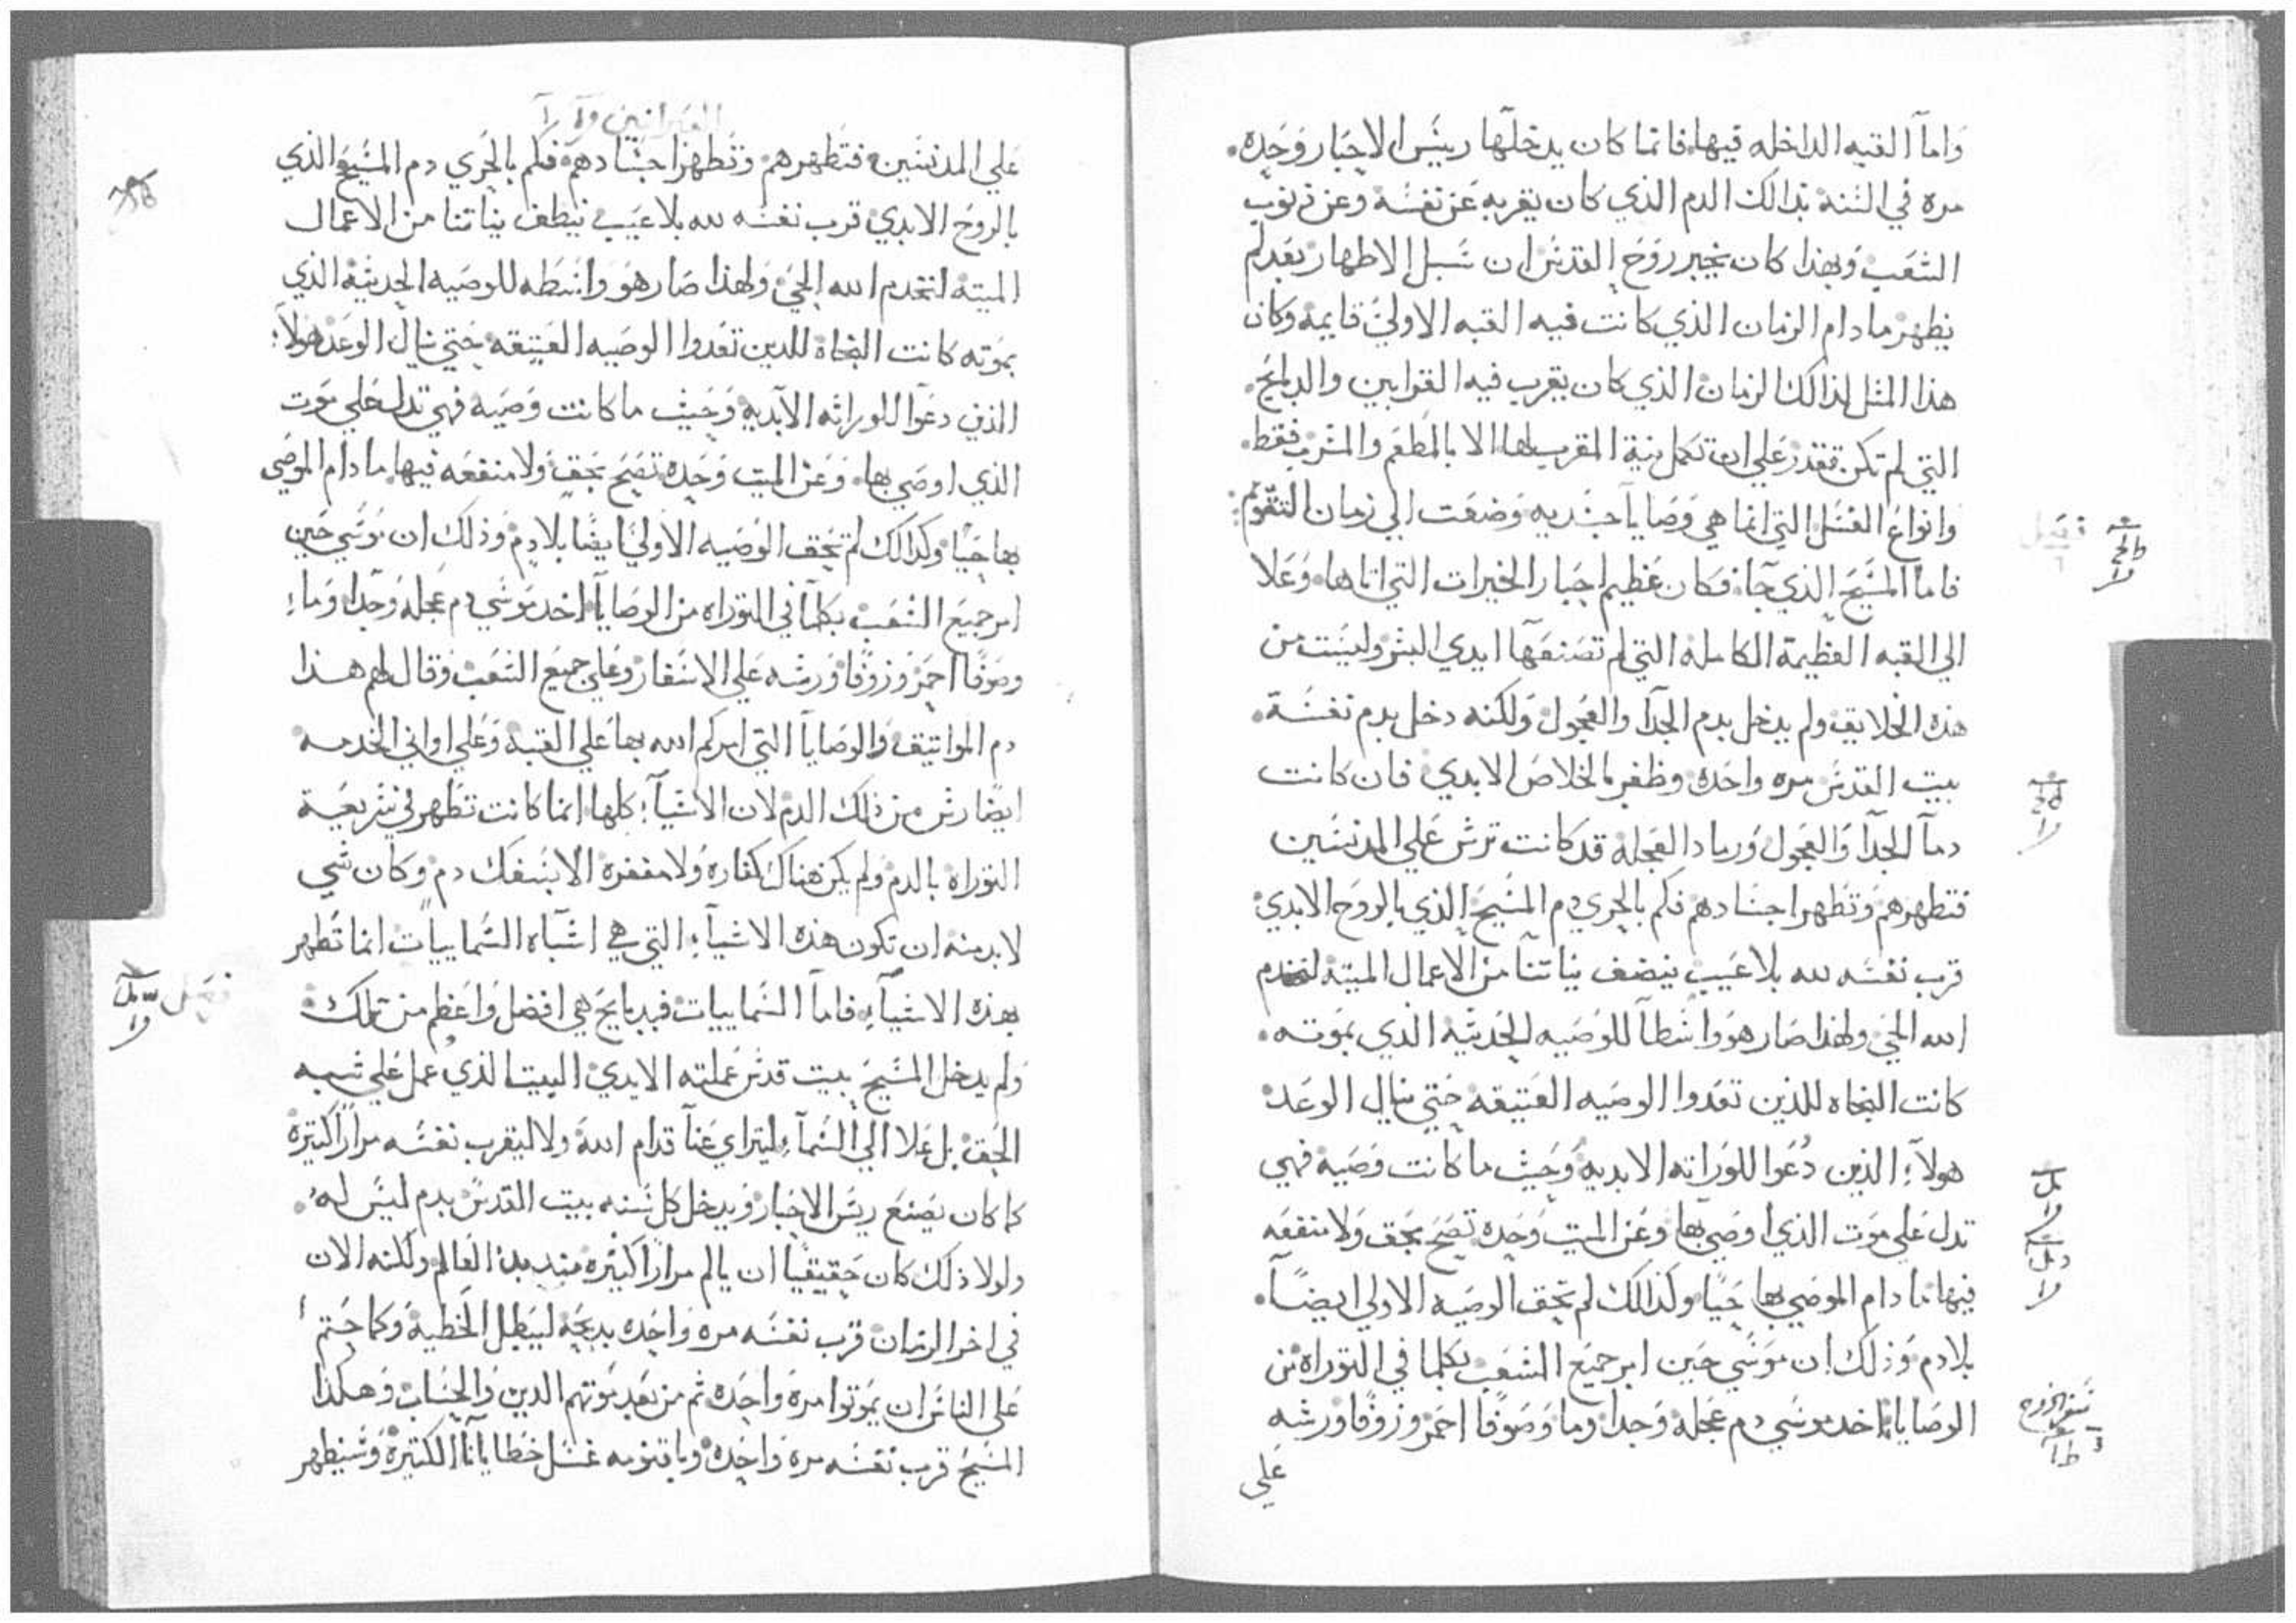 واما القبه الداخله فيها فانما كان يدخلها رييس الاحبار وحده
مره في السنه بذالك الدم الذي كان يقربه عن نفسه وعن ذنوب
الشعب وبهذا كان يخبر روح القدس ان سبل الاطهار بعد لم
يظهر ما دام الزمان الذي كانت فيه القبه الاولي قايمه وكان
هذا المثل لذالك الزمان الذي كان يقرب فيه القرابين والدبايح
التي لم تكن تقدر علي ان تكمل نية المقرب لها الا بالمطعم والمشرب فقط
وانواع الغسل التي انما هي وصايا جسديه وضعت الي زمان التقويم
فاما المسيح الذي جا فكان عظيم احبار الخيرات التي اتاها وعلا
الي القبه العظيمة الكامله التي لم تصنعها ايدي البشر وليست من
هذه الخلايق ولم يدخل بدم الجدا والعجول ولكنه دخل بدم نفسة
بيت القدس مره واحده وظفر بالخلاص الابدي فان كانت
دما الجدا والعجول ورماد العجلة قد كانت ترش علي المدنسين
فتطهرهم وتطهر اجسادهم فكم بالحري دم المسيح الذي بالروح الابدي
قرب نفسه لله بلا عيب ينضف نياتنا من الاعمال الميتة لنخدم
الله الحي ولهذا صار هو واسطا للوصيه الحديثه الذي بموته
كانت النجاه للذين تعدوا الوصيه العتيقه حتي ينال الوعد
هولاء الذين دعوا للوراثه الابديه وحيث ما كانت وصيه فهي
تدل علي موت الذي اوصي بها وعن الميت وحده تصح بحق ولا منفعه
فيها ما دام الموصي بها حيا وكذالك لم تحق الوصيه الاولي ايضا
بلا دم وذلك ان موسي حين امر جميع الشعب بكلما في التوراه من
الوصايا اخد موسي دم عجله وجدا وما وصوفا احمر وزوفا ورشه
علي
سفر الخروج
العبرانيين
علي المدنسين فتطهرهم وتطهر اجسادهم فكم بالحري دم المسيح الذي
بالروح الابدي قرب نفسه لله بلا عيب ينظف نياتنا من الاعمال
الميته لنخدم الله الحي ولهذا صار هو واسطه للوصيه الحديثة الذي
بموته كانت النجاة للدين تعدوا الوصيه العتيقه حتي ينال الوعد هولاء
الذين دعوا للوراثه الابديه وحيث ما كانت وصيه فهي تدل علي موت
الذي اوصي بها وعن الميت وحده تصح بحق ولا منفعه فيها ما دام الموصي
بها حيا وكدالك لم تحق الوصيه الاولي ايضا بلا دم وذلك ان موسي حين
امر جميع الشعب بكلما في التوراه من الوصايا اخد موسي دم عجله وجدا وماء
وصوفا احمر وزوفا ورشه علي الاسفار وعلي جميع الشعب وقال لهم هذا
دم المواتيق والوصايا التي امركم الله بها علي القبه وعلي اواني الخدمه
ايضا رش من ذلك الدم لان الاشيا كلها انما كانت تطهر في شريعية
التوراه بالدم ولم يكن هناك كفاره ولا مغفره الا بسفك دم وكان شي
لابد منه ان تكون هذه الاشياء التي هي اشباه السماييات انما تطهر
بهذه الاشياء فاما السماييات فبدبايح هي افضل واعظم من تلك
ولم يدخل المسيح بيت قدس عملته الايدي البيت الذي عمل علي شبه
الحق بل علا الي السماء ليتراي عنا قدام الله ولا ليقرب نفسه مرارا كتيرة
كما كان يصنع ريس الاحبار ويدخل كل سنه بيت القدس بدم ليس له
ولولا ذلك كان حقيقيا ان يالم مرارا كثيره منذ بدء العالم ولكنه الان
في اخر الزمان قرب نفسه مره واحده بدبحه ليبطل الخطية وكما حتم
علي الناس ان يموتوا مرة واحده ثم من بعد موتهم الدين والحساب وهكذا
المسيح قرب نفسه مرة واحده وباقنومه غسل خطايانا الكثيرة وسيظهر
فصل